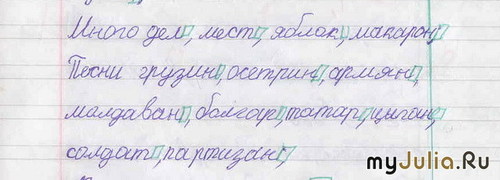 Много дел, мест, яблок, макарон,
Песни грузин, осетин, армян,
малдаван, болгар, татар, цыган,
солдат, партизан,
myJulia.Ru